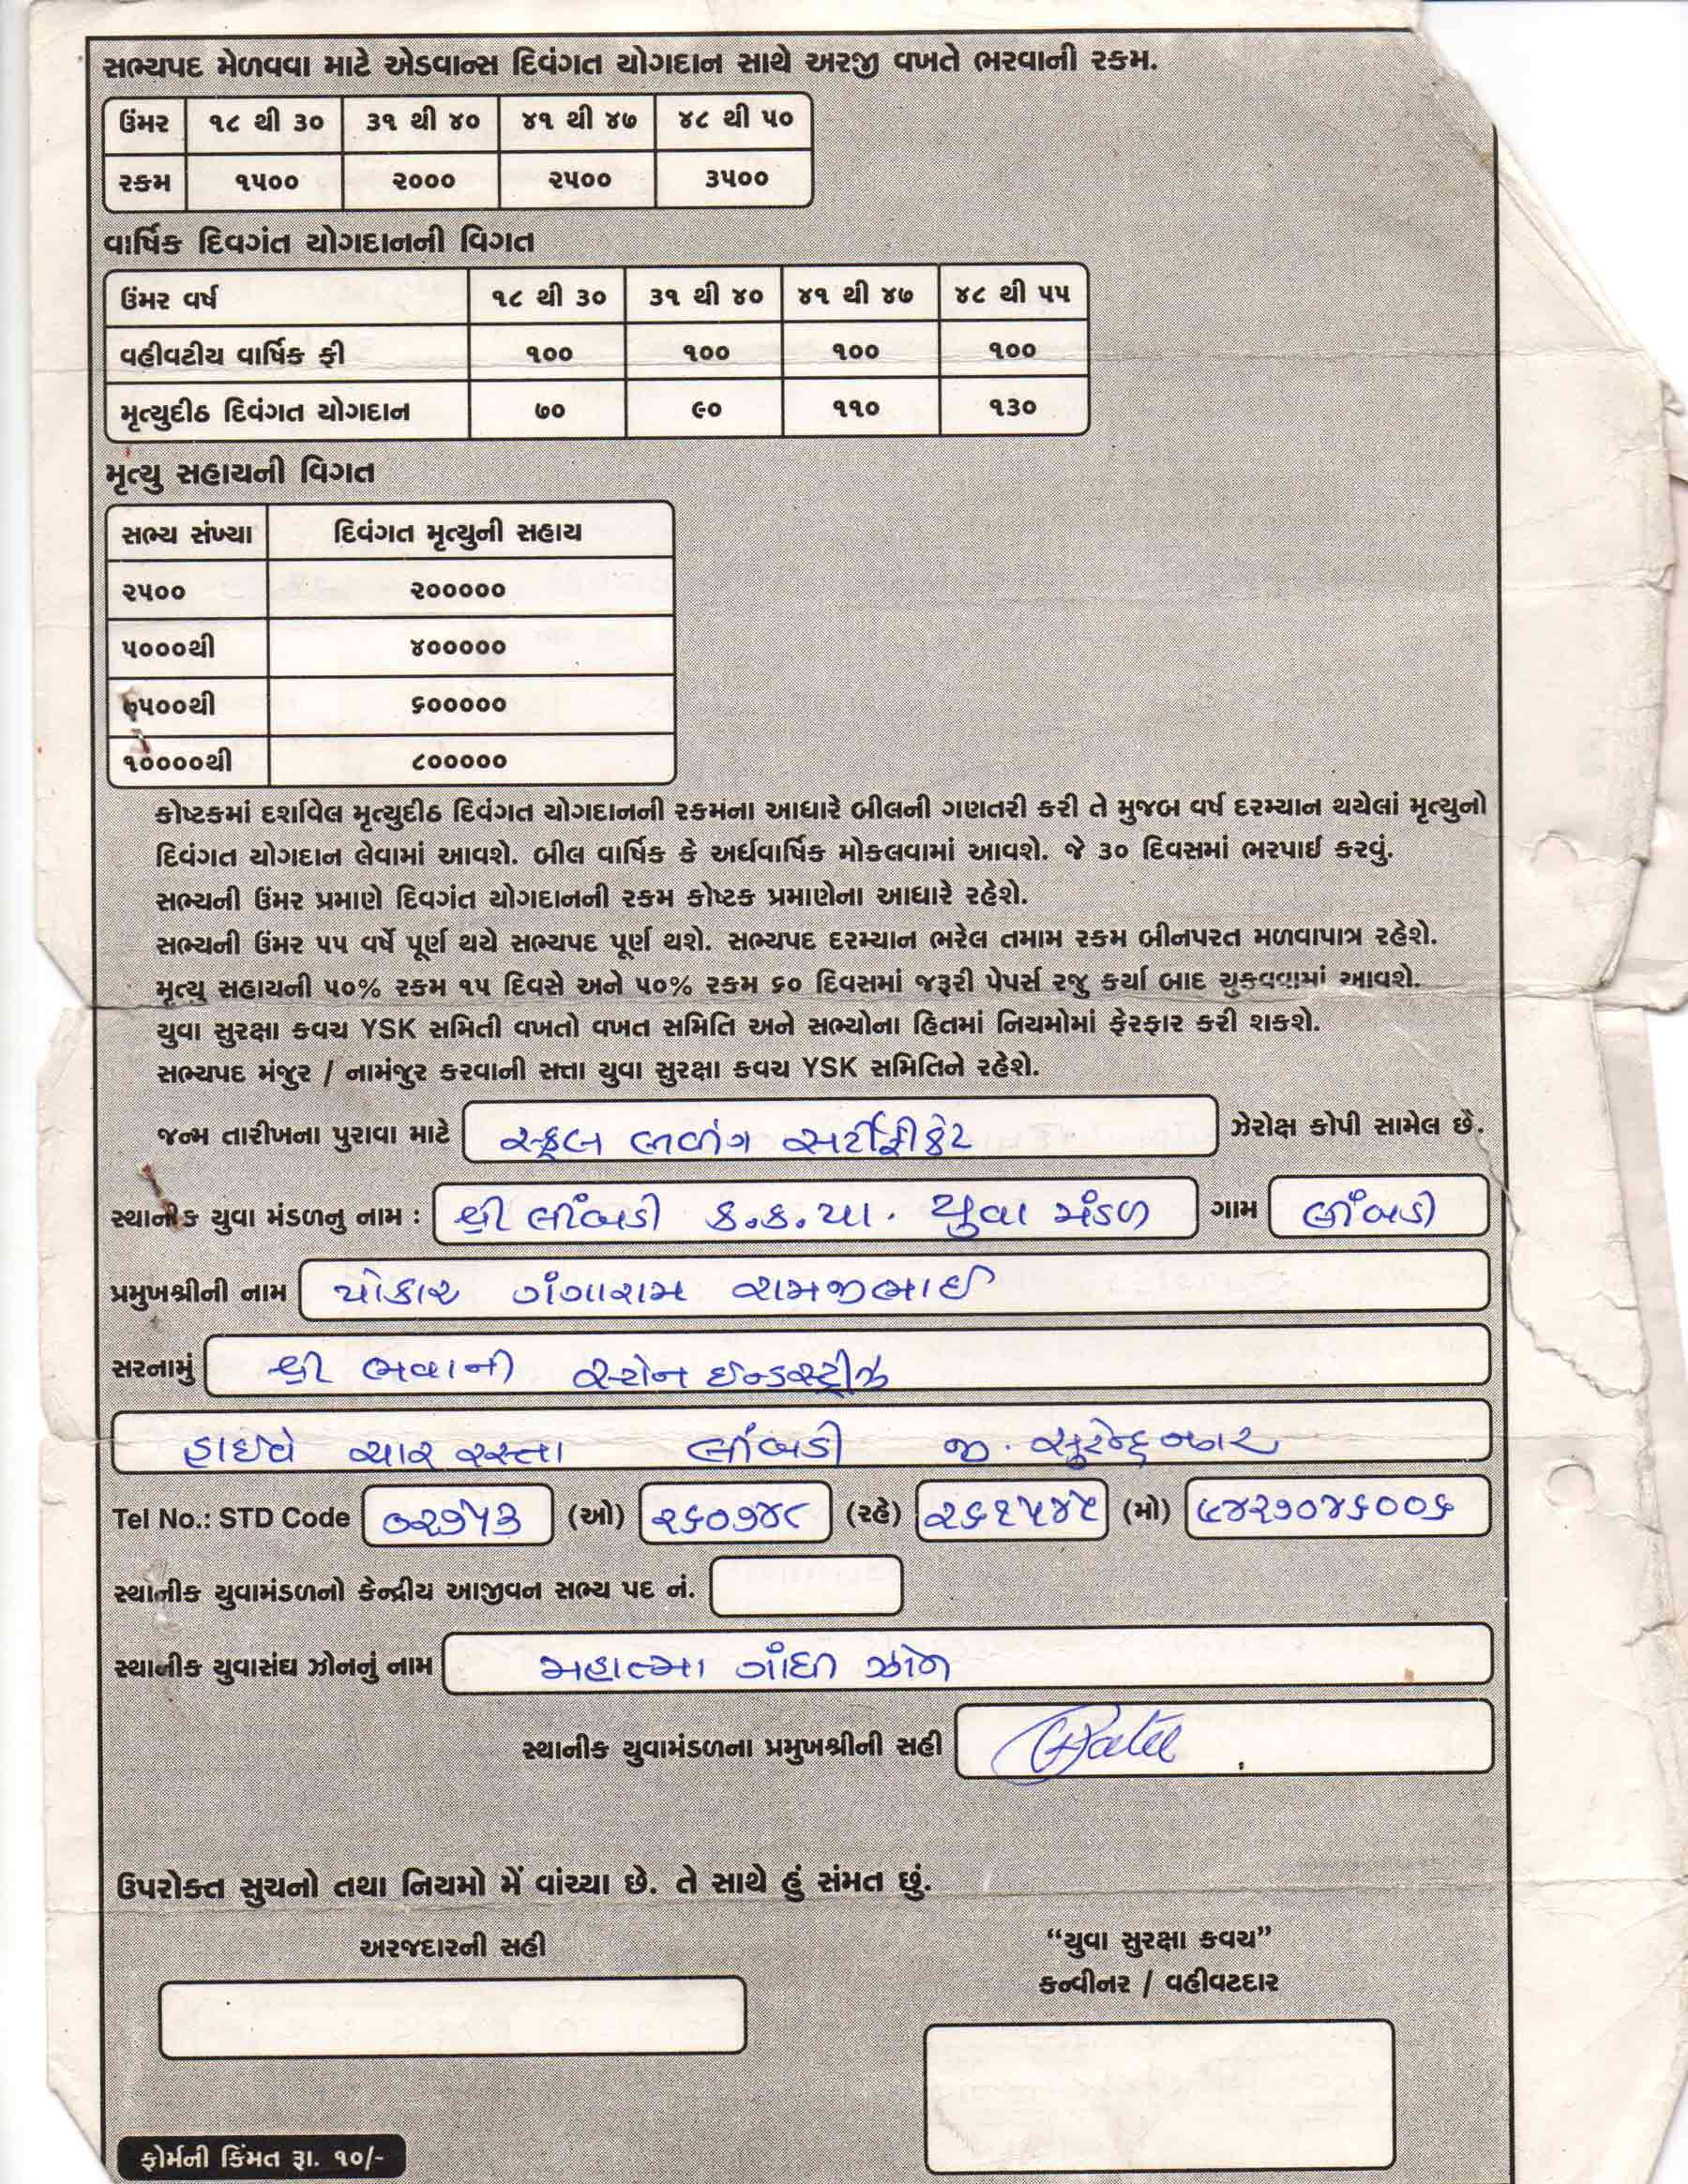 સભ્યપદ મેળવવા માટે એડવાન્સ દિવંગત યોગદાન સાથે અરજી વખતે ભરવાની રકમ.
ઉંમર ૧૮ થી ૩૦ ૩૧ થી ૪૦ ૪૧ થી ૪૭ ૪૮ થી ૫૦
રકમ ૧૫૦૦ ૨૦૦૦ ૨૫૦૦ ૩૫૦૦
વાર્ષિક દિવગંત યોગદાનની વિગત
ઉંમર વર્ષ ૧૮ થી ૩૦ ૩૧ થી ૪૦ ૪૧ થી ૪૭ ૪૮ થી ૫૫
વહીવટીય વાર્ષિક ફી ૧૦૦ ૧૦૦ ૧૦૦ ૧૦૦
મૃત્યુદીઠ દિવંગત યોગદાન ૭૦ ૯૦ ૧૧૦ ૧૩૦
મૃત્યુ સહાયની વિગત
સભ્ય સંખ્યા દિવંગત મૃત્યુની સહાય
૨૫૦૦ ૨૦૦૦૦૦
૫૦૦૦થી ૪૦૦૦૦૦
૭૫૦૦થી ૬૦૦૦૦૦
૧૦૦૦૦થી ૮૦૦૦૦૦
કોષ્ટકમાં દર્શાવેલ મૃત્યુદીઠ દિવંગત યોગદાનની રકમના આધારે બીલની ગણતરી કરી તે મુજબ વર્ષ દરમ્યાન થયેલાં મૃત્યુનો
દિવંગત યોગદાન લેવામાં આવશે. બીલ વાર્ષિક કે અર્ધવાર્ષિક મોકલવામાં આવશે. જે ૩૦ દિવસમાં ભરપાઈ કરવું.
સભ્યની ઉંમર પ્રમાણે દિવગંત યોગદાનની રકમ કોષ્ટક પ્રમાણેના આધારે રહેશે.
સભ્યની ઉંમર ૫૫ વર્ષે પૂર્ણ થયે સભ્યપદ પૂર્ણ થશે. સભ્યપદ દરમ્યાન ભરેલ તમામ રકમ બીનપરત મળવાપાત્ર રહેશે.
મૃત્યુ સહાયની ૫૦% રકમ ૧૫ દિવસે અને ૫૦% રકમ ૬૦ દિવસમાં જરૂરી પેપર્સ રજુ કર્યા બાદ ચુકવવામાં આવશે.
યુવા સુરક્ષા કવચ YSK સમિતી વખતો વખત સમિતિ અને સભ્યોના હિતમાં નિયમોમાં ફેરફાર કરી શકશે.
સભ્યપદ મંજુર / નામંજુર કરવાની સત્તા યુવા સુરક્ષા કવચ YSK સમિતિને રહેશે.
જન્મ તારીખના પુરાવા માટે સ્કૂલ લીવીંગ સર્ટીફીકેટ ઝેરોક્ષ કોપી સામેલ છે.
સ્થાનીક યુવા મંડળનુ નામ : શ્રી લીંબડી ક.ક.પા. યુવા મંડળ ગામ લીંબડી
પ્રમુખશ્રીની નામ પોકાર ગંગારામ રામજીભાઈ
સરનામું શ્રી ભવાની સ્ટોન ઈન્ડસ્ટ્રીઝ
હાઈવે ચાર રસ્તા લીંબડી જી. સુરેન્દ્રનગર
Tel No.: STD Code ૦૨૭૫૩ (ઓ) ૨૬૦૭૪૮ (રહે) ૨૬૧૫૪૯ (મો) ૯૪૨૭૦૪૬૦૦૬
સ્થાનીક યુવામંડળનો કેન્દ્રીય આજીવન સભ્ય પદ નં.
સ્થાનીક યુવાસંઘ ઝોનનું નામ મહાત્મા ગાંધી ઝોન
સ્થાનીક યુવામંડળના પ્રમુખશ્રીની સહી GPatel
ઉપરોક્ત સુચનો તથા નિયમો મેં વાંચ્યા છે. તે સાથે હું સંમત છું.
અરજદારની સહી
“યુવા સુરક્ષા કવચ”
કન્વીનર / વહીવટદાર
ફોર્મની કિંમત રૂા. ૧૦/-